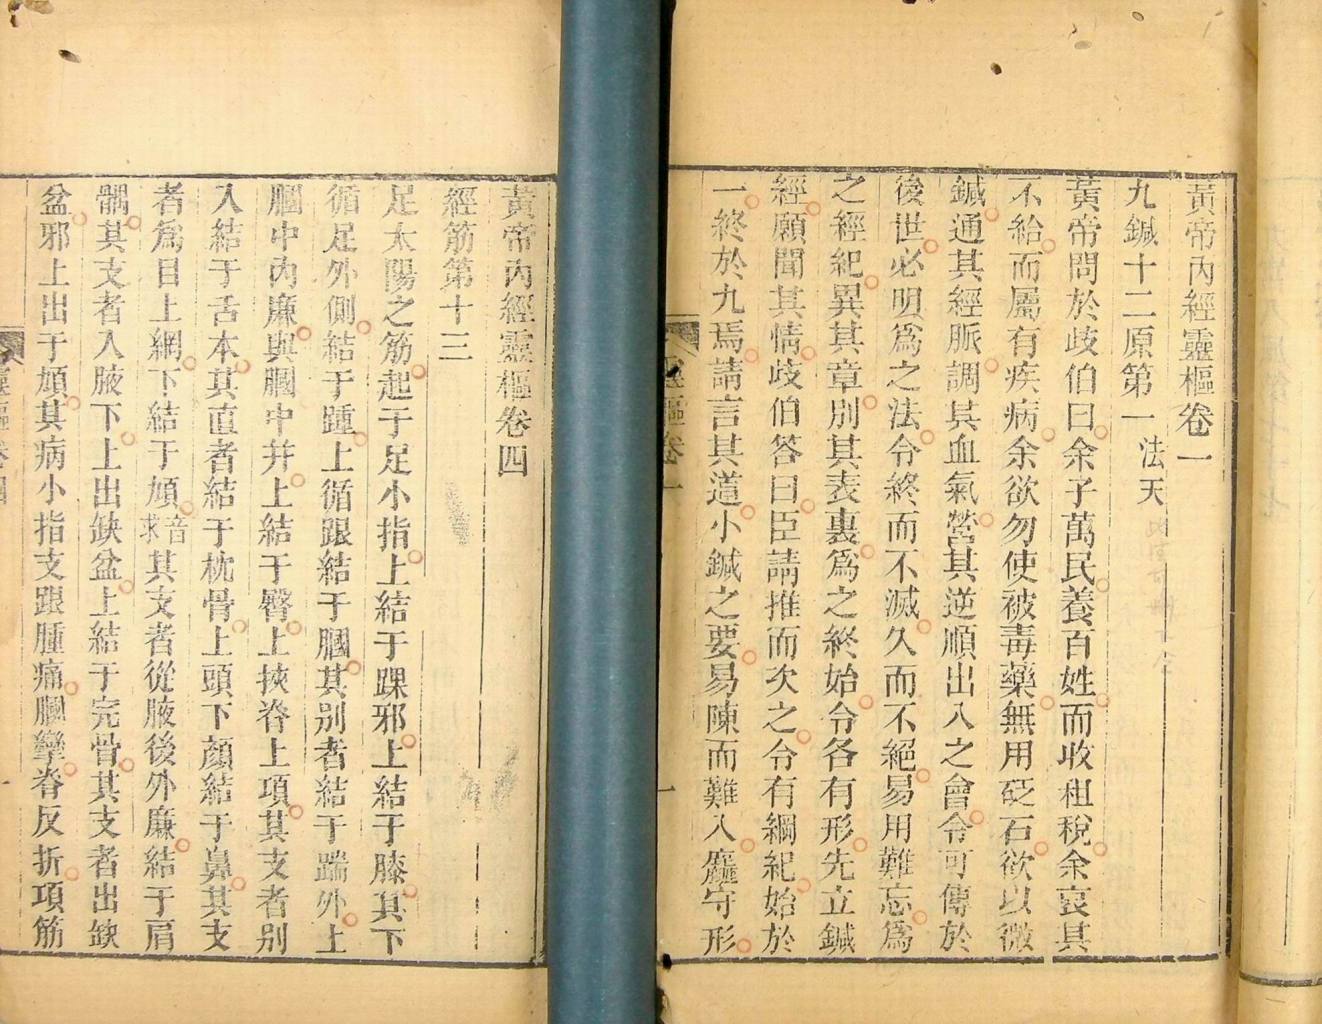 黃帝內經靈樞卷一
九鍼十二原第一 法天
黃帝問於歧伯曰余子萬民養百姓而收租稅余哀其
不給而屬有疾病余欲勿使被毒藥無用砭石欲以微
鍼通其經脈調其血氣營其逆順出入之會令可傳於
後世必明爲之法令終而不滅久而不絕易用難忘爲
之經紀異其章別其表裏爲之終始令各有形先立鍼
經願聞其情歧伯答曰臣請推而次之令有綱紀始於
一終於九焉請言其道小鍼之要易陳而難入麤守形
靈樞卷一
一
黃帝內經靈樞卷四
經筋第十三
足太陽之筋起于足小指上結于踝邪上結于膝其下
循足外側結于踵上循跟結于膕其別者結于踹外上
膕中內廉與膕中并上結于臀上挾脊上項其支者別
入結于舌本其直者結于枕骨上頭下顏結于鼻其支
者爲目上網下結于頄音求其支者從腋後外廉結于肩
髃其支者入腋下上出缺盆上結于完骨其支者出缺
盆邪上出于頄其病小指支跟腫痛膕攣脊反折項筋
靈樞卷四
一